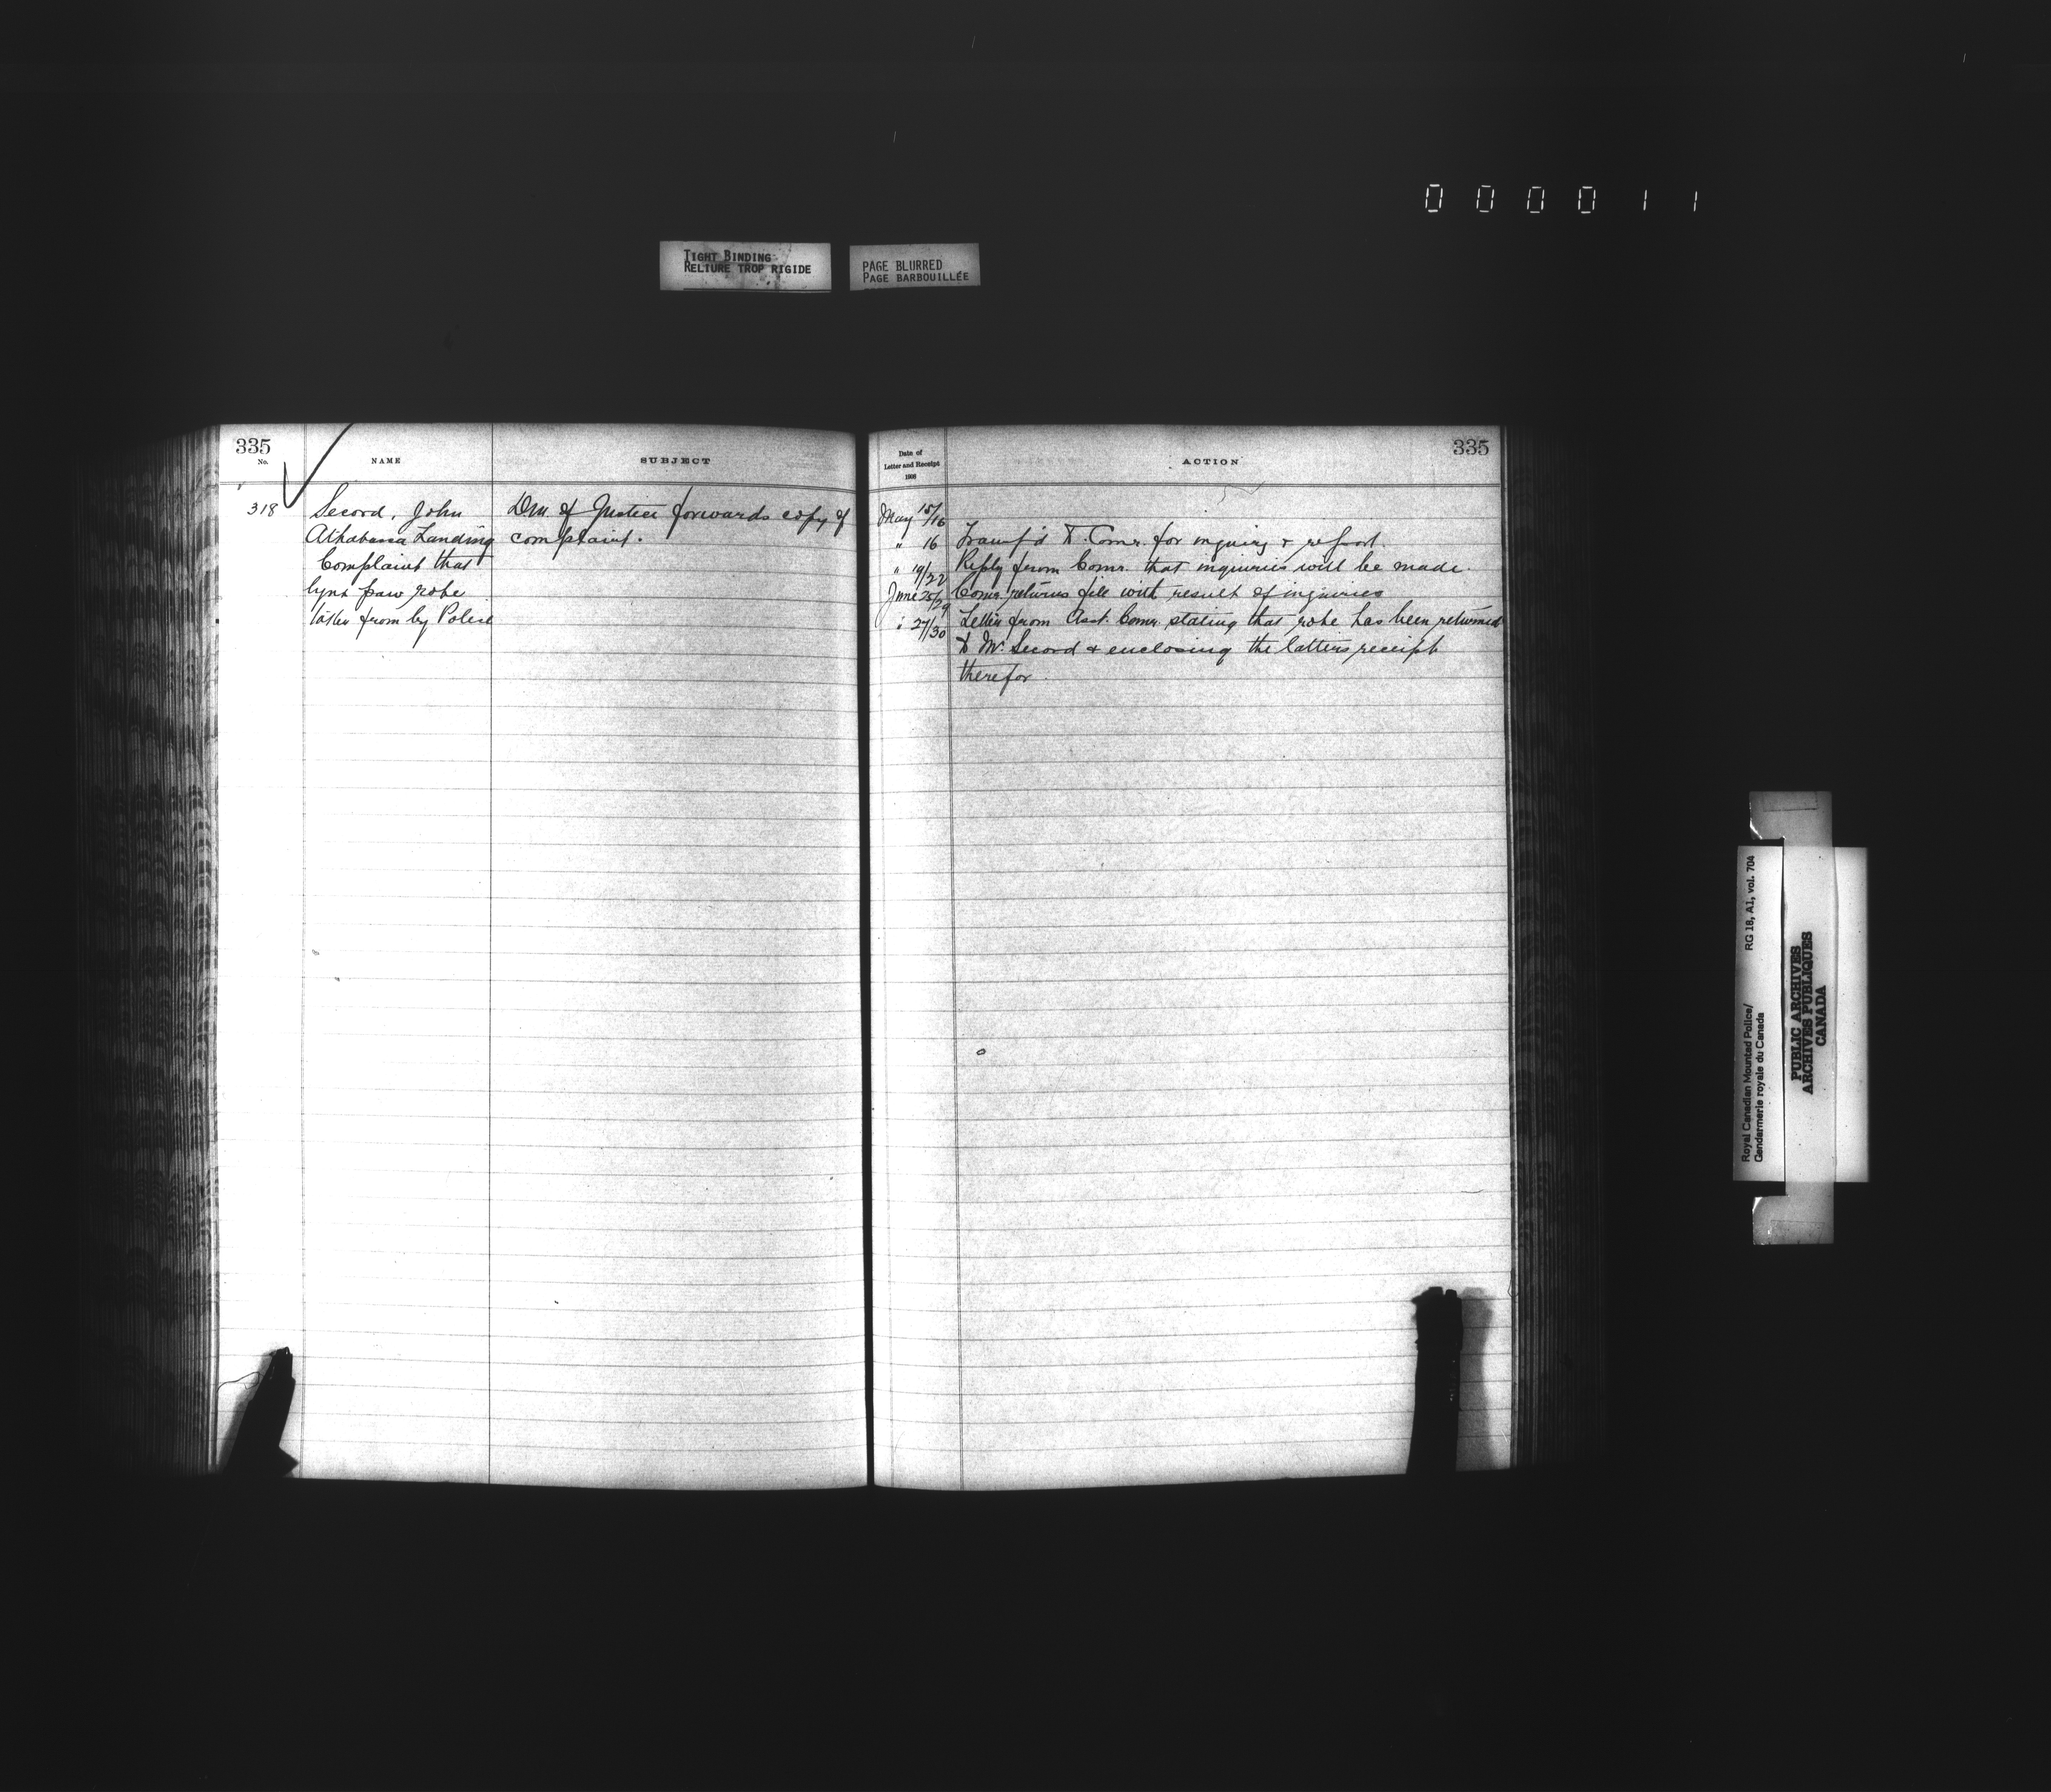 000011
TIGHT BINDING
RELIURE TROP RIGIDE
PAGE BLURRED
PAGE BARBOUILLÉE
335
No.
NAME
SUBJECT
318
Secord, John
Athabasca Landing
Complaint that
lynx paw robe
taken from by Police
DM of Justice forwards copy of
complaint.
Date of
Letter and Receipt
1908
ACTION
335
May 15/16
" 16 Transf'd to Comr. for inquiry & report.
" 19/22 Reply from Comr. that inquiries will be made.
June 25/29 Comr. returns file with result of inquiries
" 27/30 Letter from Asst. Comr. stating that robe has been returned
to Mr. Secord & enclosing the latters receipt
therefor.
Royal Canadian Mounted Police/
Gendarmerie royale du Canada
RG 18, A1, vol. 704
PUBLIC ARCHIVES
ARCHIVES PUBLIQUES
CANADA